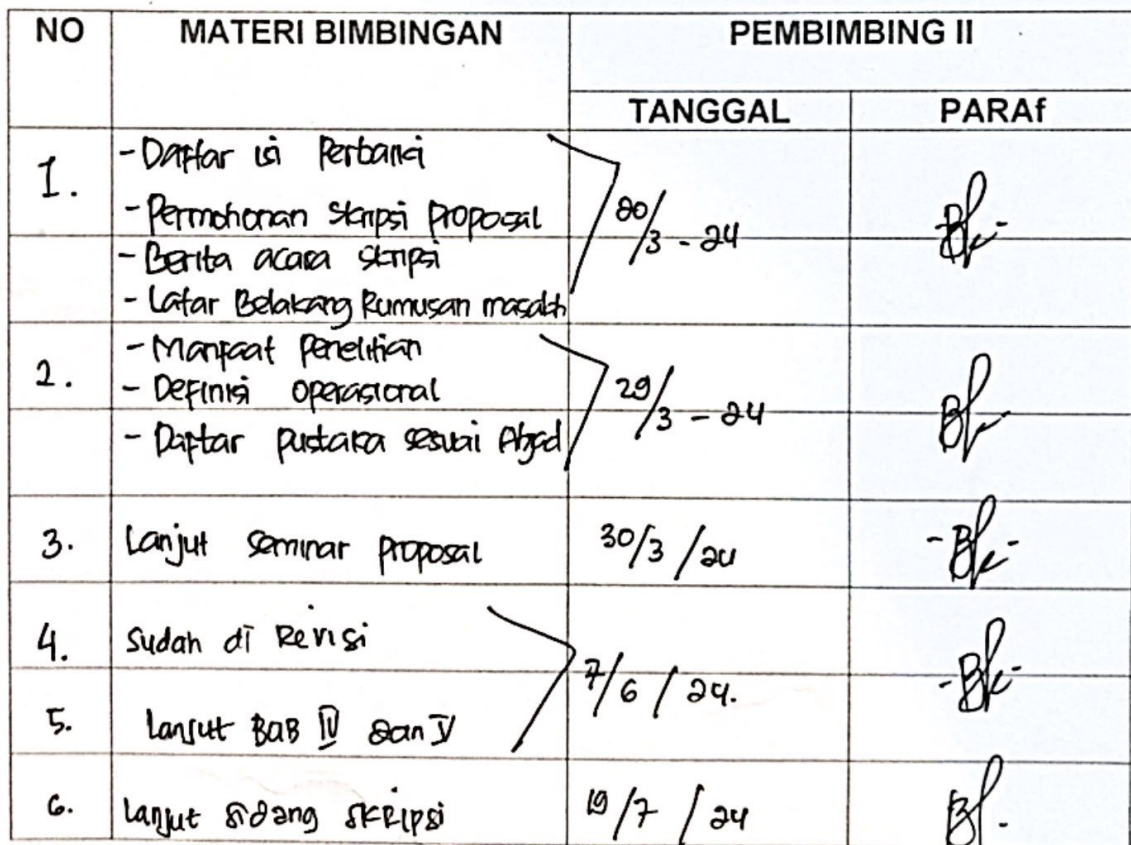 NO MATERI BIMBINGAN PEMBIMBING II
TANGGAL PARAf
1. - Daftar isi Perbaiki
- Permohonan skripsi proposal
20/3 - 24
- Berita acara skripsi
- Latar Belakang Rumusan masalah
2. - Manfaat penelitian
- Definisi operasional
29/3 - 24
- Daftar pustaka sesuai Abjad
3. Lanjut seminar proposal 30/3 /24
4. Sudah di Revisi
7/6 / 24.
5. Lanjut BAB IV dan V
6. Lanjut sidang skRipsi 19/7 / 24